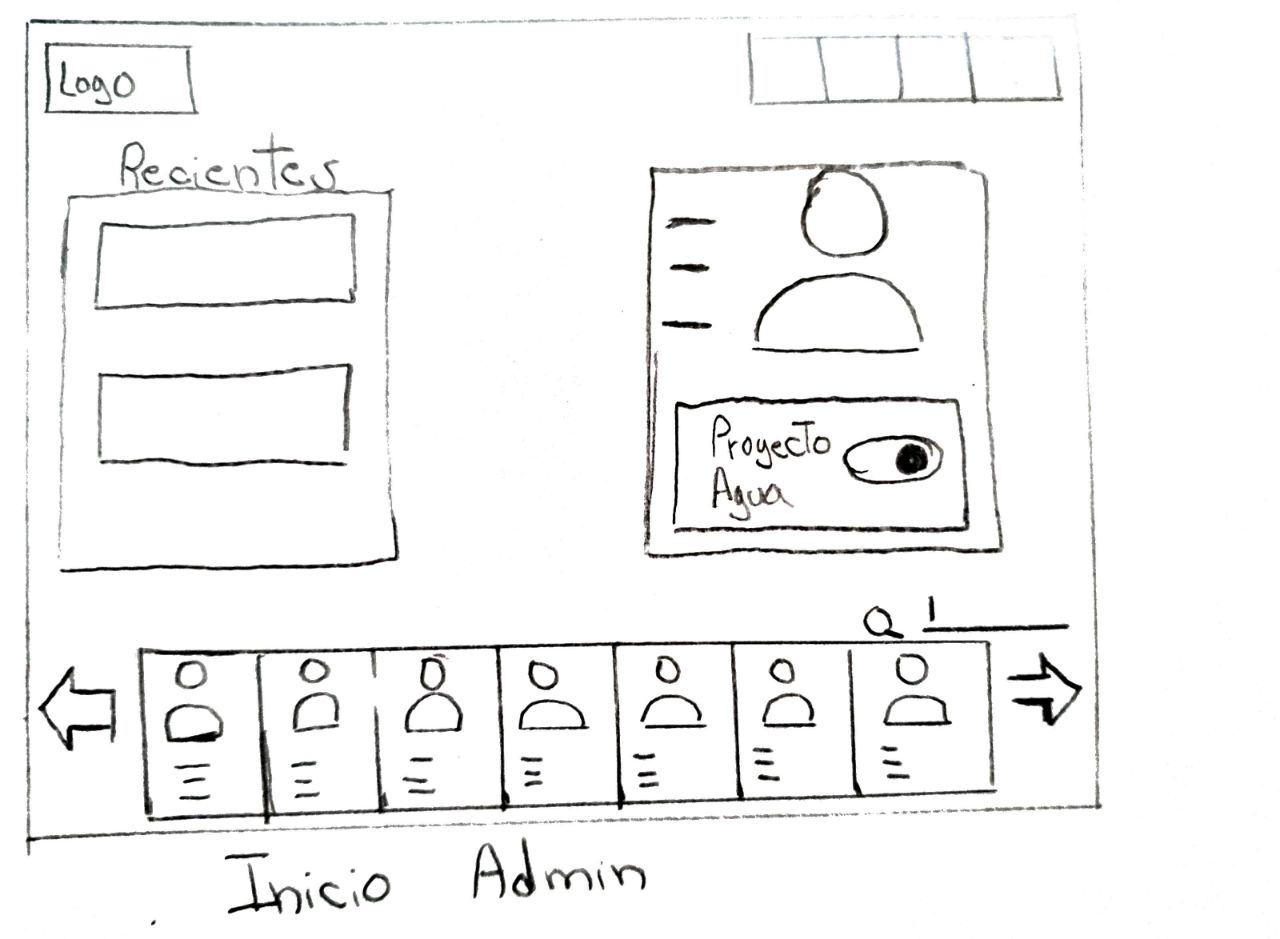 Logo
Recientes
Proyecto
Agua
Inicio Admin